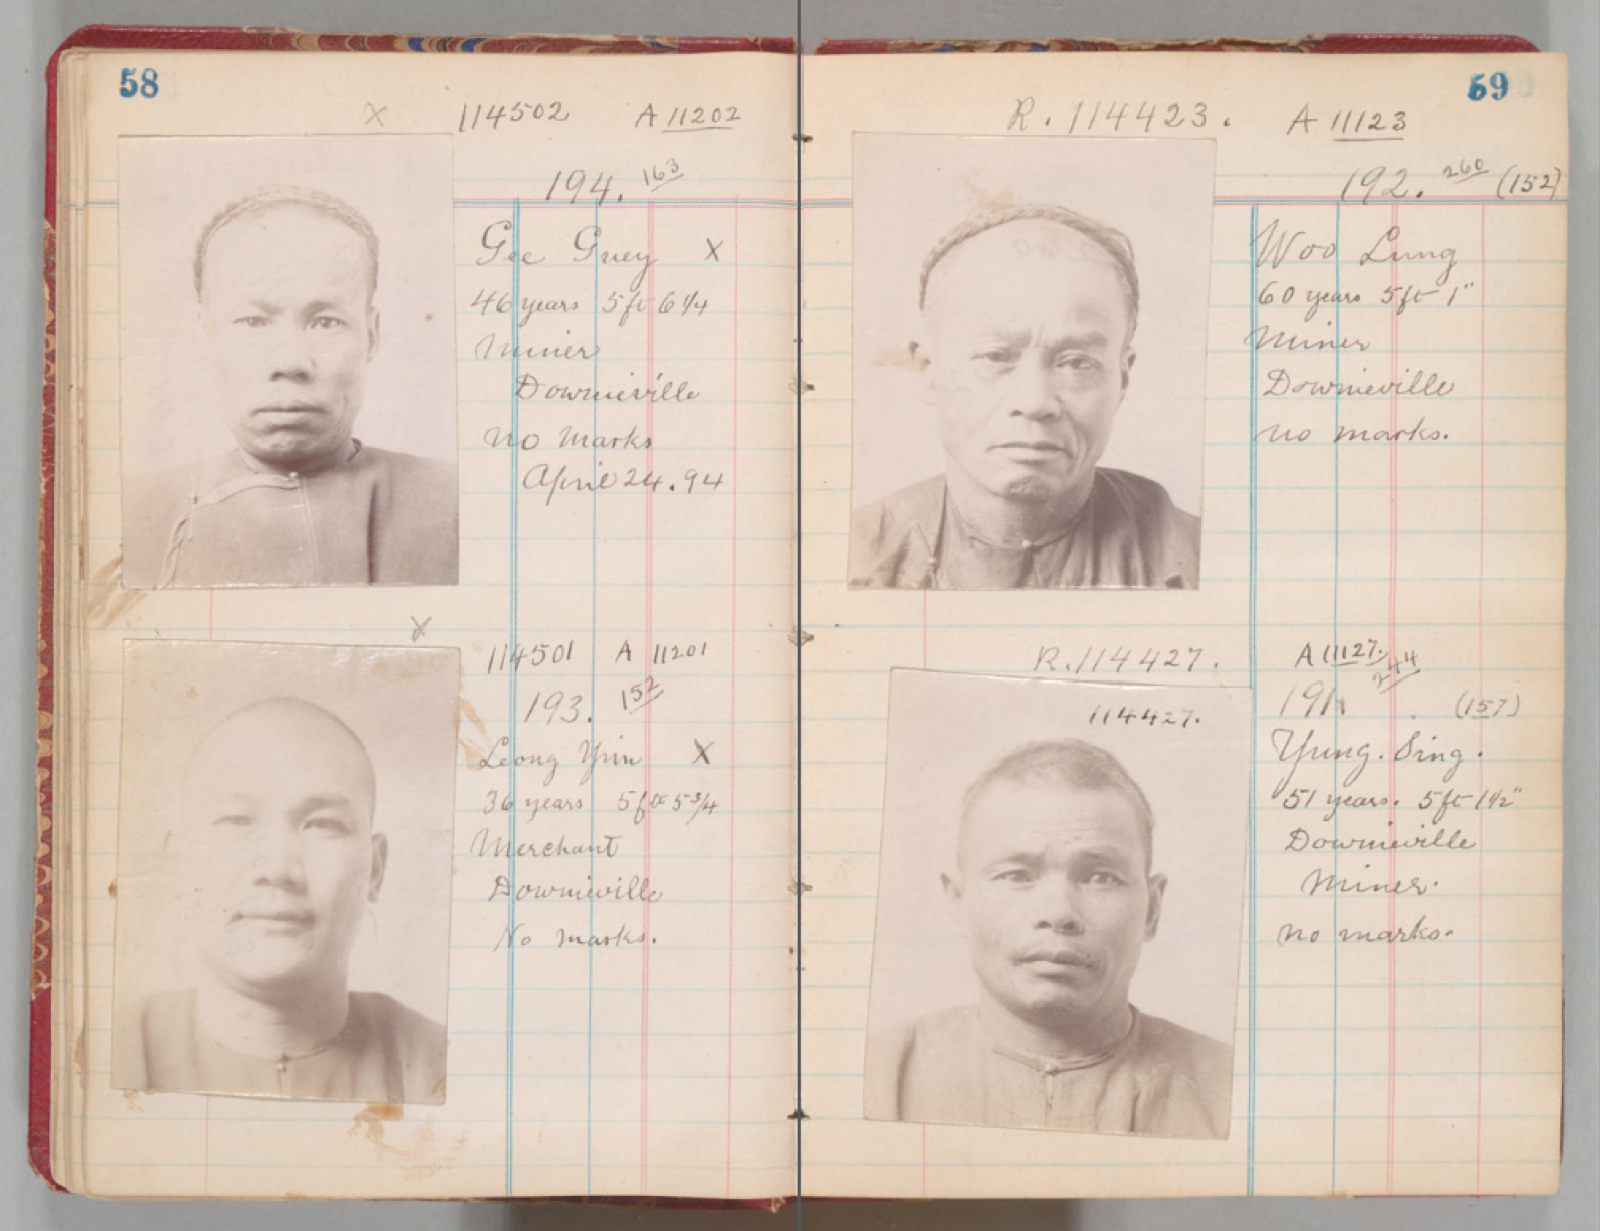 58
x 114502 A 11202
194. 163
Gee Guey x
46 years 5 ft 6 1/4
Miner
Downieville
no marks
April 24. 94
x
114501 A 11201
193. 152
Leong Yim x
36 years 5 ft 5 3/4
Merchant
Downieville
No marks.
59
R. 114423. A 11123
192. 260 (152)
Woo Lung
60 years 5 ft 1"
Miner
Downieville
no marks.
R. 114427. A 11127. 244
114427.
191. (157)
Yung. Sing.
51 years. 5 ft 1 1/2"
Downieville
Miner.
no marks.